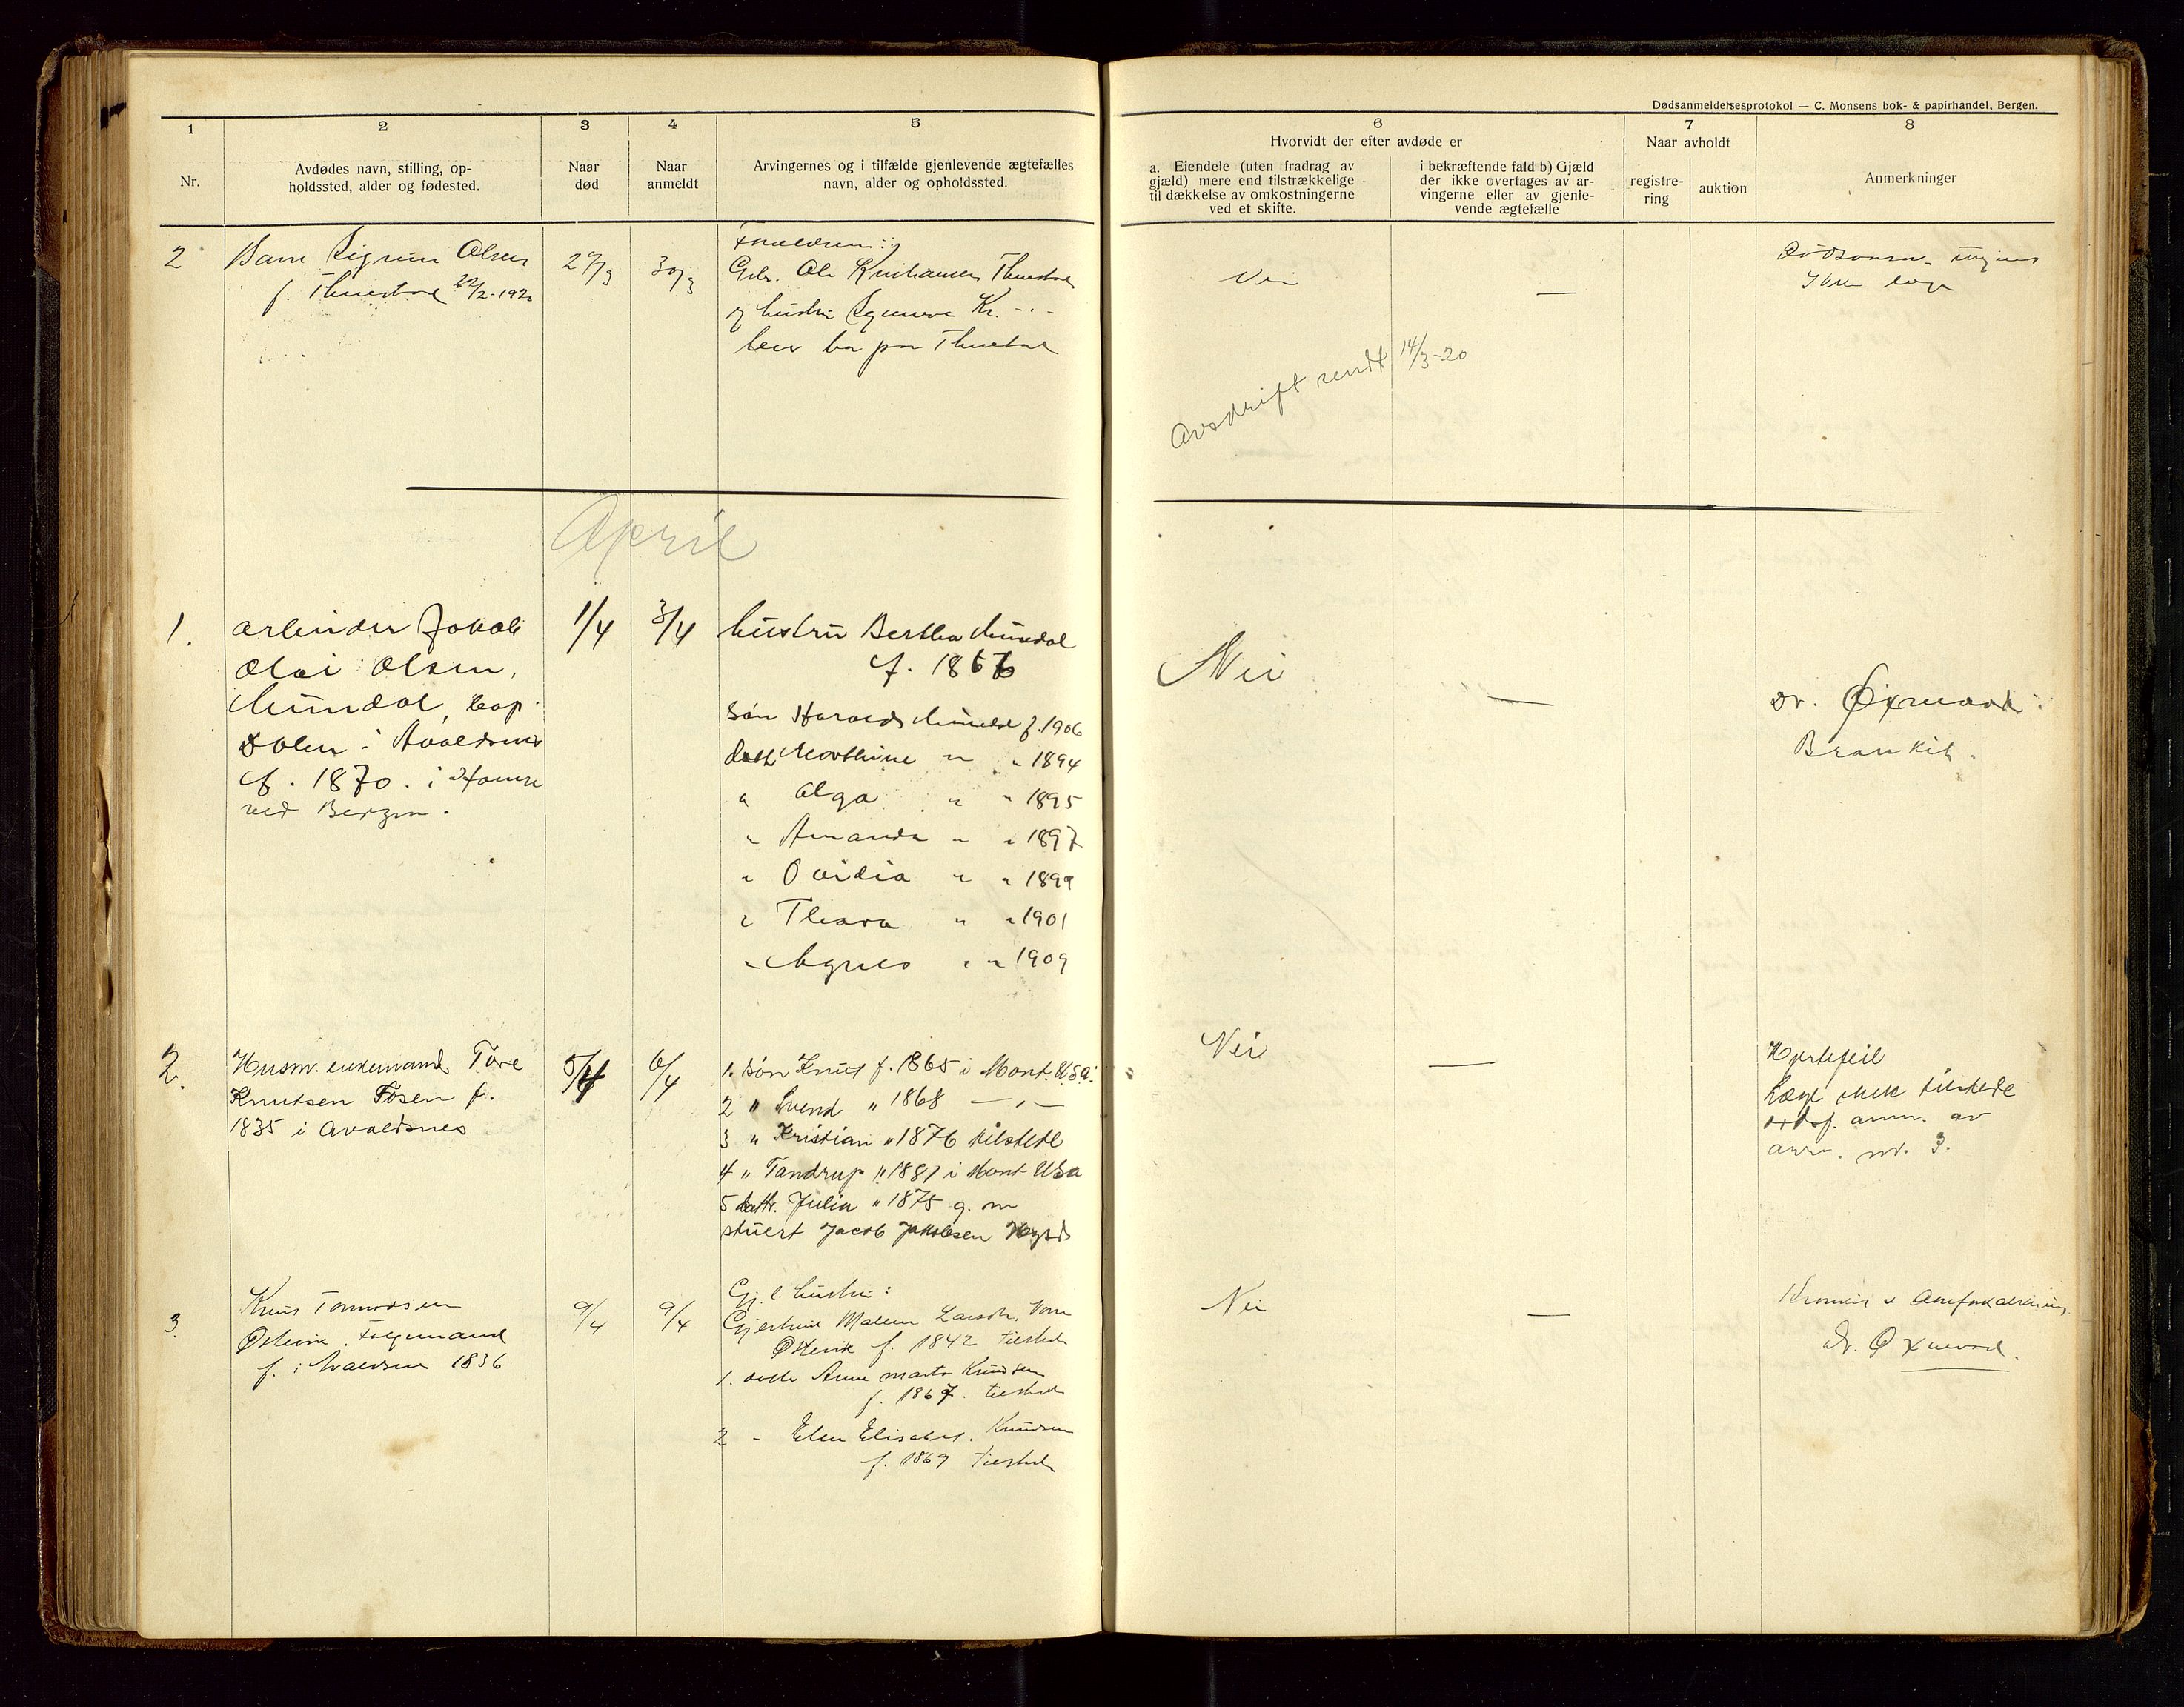 Dødsanmeldelsesprotokol — C. Monsens bok- & papirhandel, Bergen.
1
2
3
4
5
6
7
8
Nr.
Avdødes navn, stilling, op-
holdssted, alder og fødested.
Naar
død
Naar
anmeldt
Arvingernes og i tilfælde gjenlevende ægtefælles
navn, alder og opholdssted.
Hvorvidt der efter avdøde er
a. Eiendele (uten fradrag av
gjæld) mere end tilstrækkelige
til dækkelse av omkostningerne
ved et skifte.
i bekræftende fald b) Gjæld
der ikke overtages av ar-
vingerne eller av gjenle-
vende ægtefælle
Naar avholdt
registre-
ring
auktion
Anmerkninger
2
Barn Sigrun Olsen
f. Thuestad 22/2-1920
27/3
30/3
Forældren:
Gbr. Ole Thuestad
og hustru Kr. - " -
bor paa Thuestad
Nei
—
Ingen
læge
Avskrift sendt 14/3-20
April
1.
arbeider Jakob
Olai Olsen
Mundal,
i Avaldsnes
f. 1870. i Hamre
ved Bergen.
1/4
3/4
hustru Bertha Mundal
f. 1867
Søn Harald Mundal f. 1906
datt. Marthine " " 1894
" Olga " " 1895
" Amanda " " 1897
" Ovidia " " 1899
" Theara " " 1901
" Agnes " " 1909
Nei
—
Dr. Øxnevad
Bronkit.
2.
Husm. enkemand Tore
Knutsen Fosen f.
1835 i Avaldsnes
5/4
6/4
1. Søn Knut f. 1865 i Mont. U.S.a.
2 " Svend " 1868 — " —
3 " Kristian " 1876 tilstede
4 " Tandrup " 1881 i Mont USa
5 datt. Julia " 1875 g. m
stuert Jacob Jakobsen Høgsd
Nei
—
Hjertefeil
Læge ikke tilstede
dødsf. anm. av
arv. nr. 3.
3.
Knut Tormodsen
Østevik. Folgemand
f. i Avaldsnes 1836
9/4
9/4
Gj. l. hustru:
Gjertrud Malene Larsdtr.
Østevik f. 1842 tilstede
1. datte Anne Marta Knudsen
f. 1867. tilstede
2 - Elen Elisabet. Knudsen
f. 1869 tilstede
Nei
—
Bronkit & Aareforkalkning
Dr. Øxnevad.